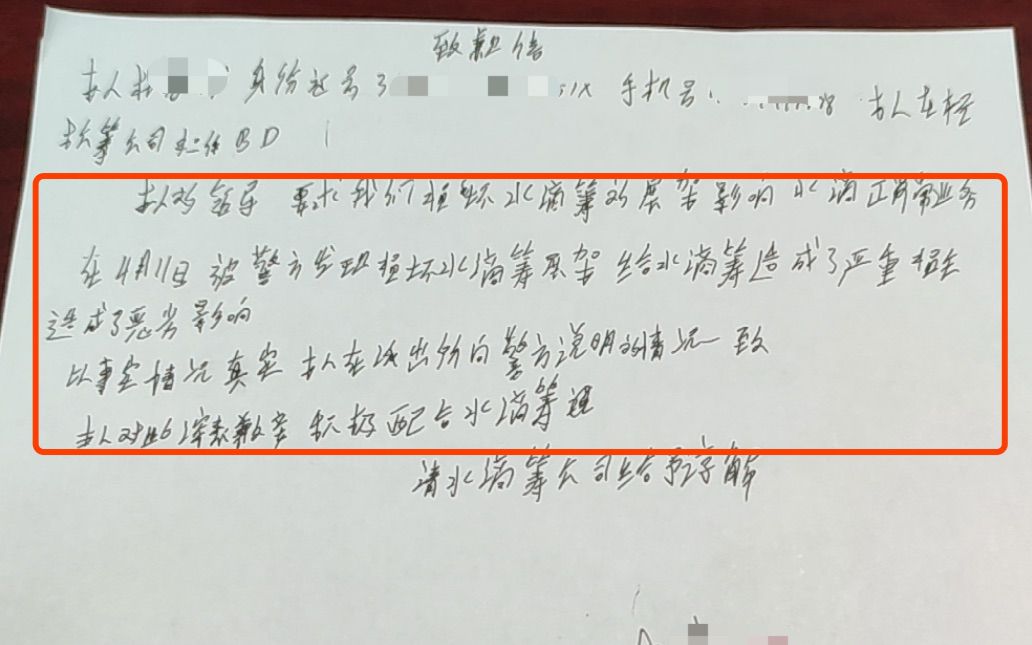 致歉信
本人杜 身份证号3 1X 手机号1 78 本人在轻
松筹公司担任BD
本人的领导 要求我们损坏水滴筹的展架影响水滴正常业务
在4月11日被警方发现损坏水滴筹展架 给水滴筹造成了严重损失
造成了恶劣影响
以事实情况真实 本人在派出所向警方说明的情况一致
本人对此深表歉意 积极配合水滴筹
请水滴筹公司给予谅解